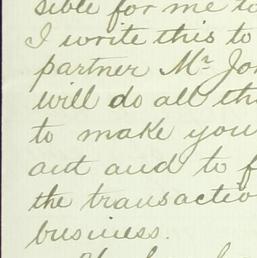 sible for me to
I write this to
partner Mr. Jon
will do all th
to make you
ant and to f
the transactio
business.